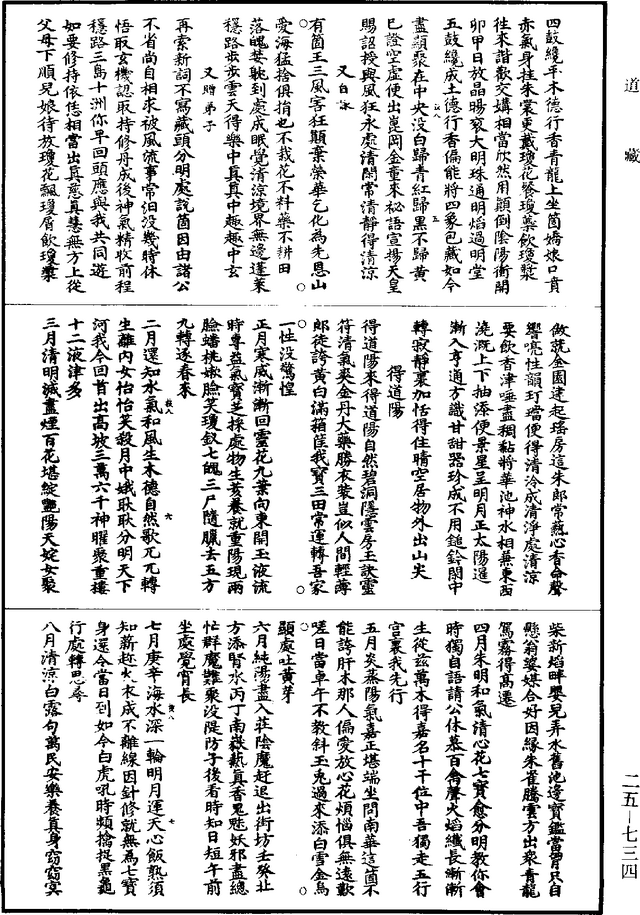 道藏
四鼓纔平木德行香青龍上坐箇嬌娘口賁
赤氣身挂朱裳更戴瓊花餐瓊蘂飲瓊漿
往來諧歡交媾相當欣然用顛倒陰陽衝開
卯甲日放晶晹裛大明珠通明焰過明堂
五鼓纔成土德行香偏能將四象包藏如今
盡顯聚在中央没白歸青紅歸黑不歸黃
已證空虛便出崑岡金童來祕語宣揚天皇
賜詔授與風狂永處清閑常清靜得清涼
又自詠
有箇王三風害狂顛棄榮華乞化為先恩山
愛海猛捨俱捐也不栽花不料藥不耕田
落魄婪躭到處成眠覺清涼境界無邊蓬萊
穩路步步雲天得樂中真真中趣趣中玄
又贈弟子
再索新詞不寫藏頭分明處說箇因由諸公
不省尚自相求被風流事常汩没幾時休
悟取玄機認取持修丹成後神氣精收前程
穩路三島十洲你早回頭應與我共同遊
如要修持依恁相當出真慈真慧無方上從
父母下順兒娘待放瓊花飄瓊屑飲瓊漿
做就金園建起瑤房這朱郎常爇心香命聲
響喨性韻玎璫便得清泠成清淨處清涼
要飲香津唾盡稠黏將華池神水相兼東西
澆溉上下抽添便景星呈明月正太陽暹
漸入亨通方識甘甜器珍成不用鎚鉗閑中
轉寂靜裏加恬得住晴空居物外出山尖
得道陽
得道陽來得道陽自然碧洞隱雲房玉訣靈
符清氣爽金丹大藥勝衣裝豈似人間輕薄
郎徒誇黃白滿箱筐我寶三田常運轉吾家
一性没驚惶
正月寒威漸漸回靈花九葉向東開玉液流
時專益氣寶芝採處物生荄養就重陽現兩
臉蟠桃嫩臉笑瓊釵七魄三尸隨臘去五方
九轉逐春來
二月還知水氣和風生木德自然歌兀兀轉
生離内女怡怡笑殺月中娥耿耿分明天下
河我今回首出高坡三萬六千神耀聚重樓
十二液津多
三月清明滅盡煙百花堪綻豔陽天姹女聚
柴新焰畔嬰兒弄水舊池邊寶鑑當胷只自
懸翁婆媒合好因緣朱雀騰雲方出衆青龍
駕霧得高遷
四月朱明和氣清心花七寶愈分明教你會
時獨自語請公休慕百禽聲火焰纖長漸漸
生從兹萬木得嘉名十干位中吾獨走五行
宫裏我先行
五月炎蒸陽氣嘉正堪端坐問南華這箇不
能誇肝木那人偏愛放心花煩惱俱無遠歎
嗟日當卓午不教斜玉兎過來添白雪金烏
顯處吐黄芽
六月純陽盡入莊陰魔趕退出街坊壬癸北
方添腎水丙丁南嶽爇真香鬼魅妖邪盡總
忙群魔難聚没隄防子後看時知日短午前
坐處覺宵長
七月庚辛海水深一輪明月運天心飯熟須
知薪趂火衣成不離線因針修就無為七寶
身還令當日到如今白虎吼時頻擒捉黑龜
行處轉思尋
八月清涼白露句萬民安樂養真身窈窈冥
二五—七三四